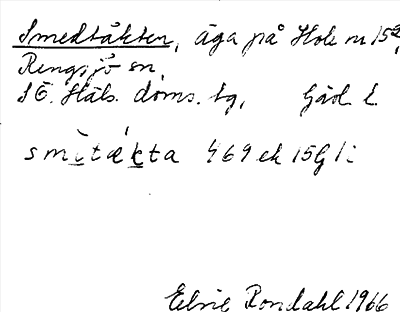 Smedtäkten, äga på Hole nr 15²,
Rengsjö sn,
SÖ. Häls. doms. bg, Gävl. l.
smìtækta 469 ek 15G 1:
Elsie Rondahl 1966